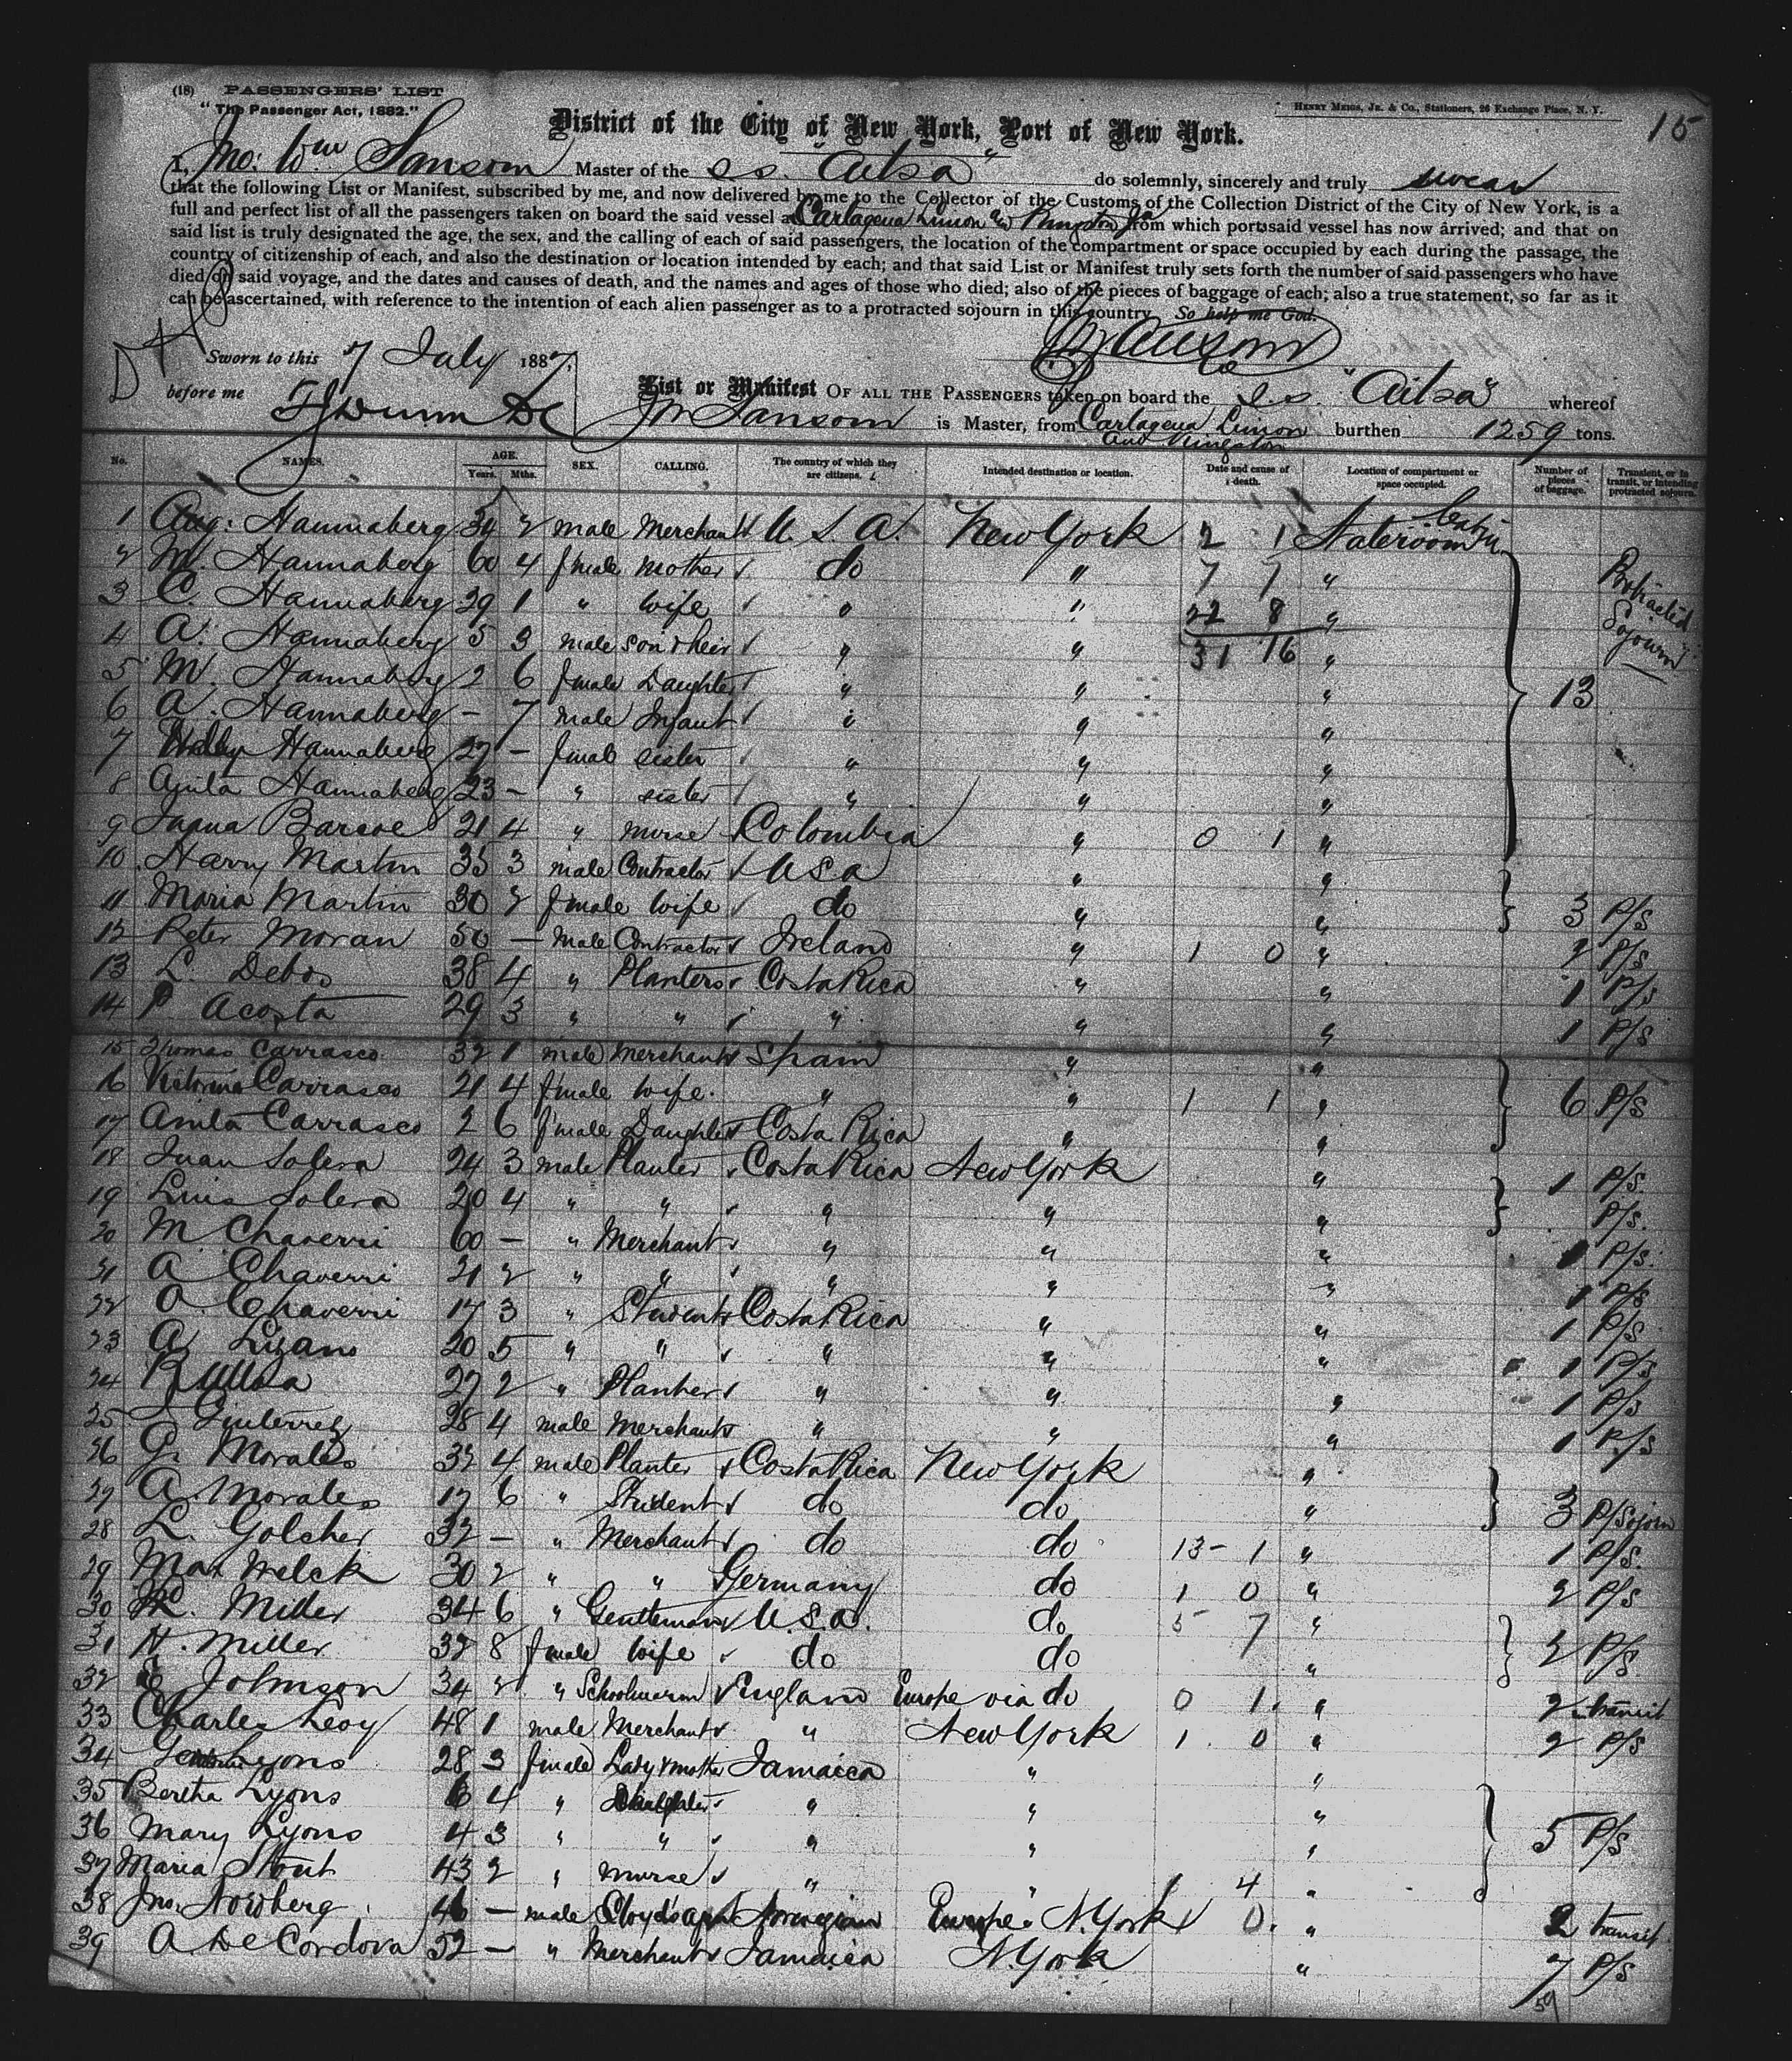 (18) PASSENGERS' LIST
"The Passenger Act, 1882."
HENRY MEIGS, JR. & CO., Stationers, 26 Exchange Place, N. Y.
15
District of the City of New York, Port of New York.
I, Jno: Wm Sansom Master of the S.S. "Ailsa" do solemnly, sincerely and truly swear
that the following List or Manifest, subscribed by me, and now delivered by me to the Collector of the Customs of the Collection District of the City of New York, is a
full and perfect list of all the passengers taken on board the said vessel at Cartagena Limon & Kingston Ja from which port said vessel has now arrived; and that on
said list is truly designated the age, the sex, and the calling of each of said passengers, the location of the compartment or space occupied by each during the passage, the
country of citizenship of each, and also the destination or location intended by each; and that said List or Manifest truly sets forth the number of said passengers who have
died on said voyage, and the dates and causes of death, and the names and ages of those who died; also of the pieces of baggage of each; also a true statement, so far as it
can be ascertained, with reference to the intention of each alien passenger as to a protracted sojourn in this country. So help me God.
Sansom
Sworn to this 7 July 1887,
before me
List or Manifest OF ALL THE PASSENGERS taken on board the S.S. "Ailsa" whereof
Jn Sansom is Master, from Cartagena Limon and Kingston burthen 1259 tons.
No. NAMES. AGE. Years. Mths. SEX. CALLING. The country of which they are citizens. Intended destination or location. Date and cause of death. Location of compartment or space occupied. Number of pieces of baggage. Transient, or in transit, or intending protracted sojourn.
1 Aug: Hannaberg 34 2 male Merchant U.S.A. New York 2 1 Stateroom Cabin
2 M. Hannaberg 60 4 female mother do " 7 7 " Protracted
3 C. Hannaberg 29 1 " wife " " 22 8 " Sojourn
4 A. Hannaberg 5 3 male son & heir " " 31 16 "
5 M. Hannaberg 2 6 female Daughter " " " 13
6 A. Hannaberg - 7 male Infant " " "
7 Hannaberg 27 - female sister " " "
8 Anita Hannaberg 23 - " sister " " "
9 Barsoe 21 4 " nurse Colombia " 0 1 "
10 Harry Martin 35 3 male Contractor USA " "
11 Maria Martin 30 2 female wife do " " 3 P/S
12 Peter Moran 50 - Male Contractor Ireland " 1 0 " 2 P/S
13 L. Debos 38 4 " Planters Costa Rica " " 1 P/S
14 P Acosta 29 3 " " " " " 1 P/S
15 Thomas Carrasco 32 1 male merchant Spain " "
16 Victorina Carrasco 21 4 female wife. " " 1 1 " 6 P/S
17 Anita Carrasco 2 6 female Daughter Costa Rica " "
18 Juan Solera 24 3 male Planter Costa Rica New York " 1 P/S.
19 Luis Solera 20 4 " " " " " P/S.
20 M Chaverri 60 - " Merchant " " " 1 P/S.
21 A Chaverri 21 2 " " " " " 1 P/S
22 A. Chaverri 17 3 " Student Costa Rica " " 1 P/S
23 A Lizano 20 5 " " " " " 1 P/S
24 R Ulloa 27 2 " Planter " " " 1 P/S
25 J Guterrez 28 4 male merchant " " " 1 P/S
26 G. Morales 32 4 male Planter Costa Rica New York "
27 A. Morales 17 6 " Student do do " 3 P/Sojorn
28 L. Golcher 32 - " Merchant do do 13 - 1 " 1 P/S.
29 Max Welck 30 2 " " Germany do 1 0 " 2 P/S
30 Miller 34 6 " Gentleman U.S.A. do 5 7 "
31 H. Miller 32 8 female wife do do " 2 P/S
32 E Johnson 34 2 " Schoolmarm England Europe via do 0 1. " 2 transit
33 Charles Levy 48 1 male Merchant " New York 1. 0 " 2 P/S
34 Lyons 28 3 female Lady & mother Jamaica " "
35 Bertha Lyons 6 4 " Daughter " " "
36 Mary Lyons 4 3 " " " " " 5 P/S
37 Maria Stout 43 2 " nurse " " 1 4 "
38 Jno. Nordberg 46 - male Lloyds agent Norwegian Europe. N. York 1 0. " 2 transit
39 A De Cordova 52 - " Merchant Jamaica N. York " 7 P/S
59